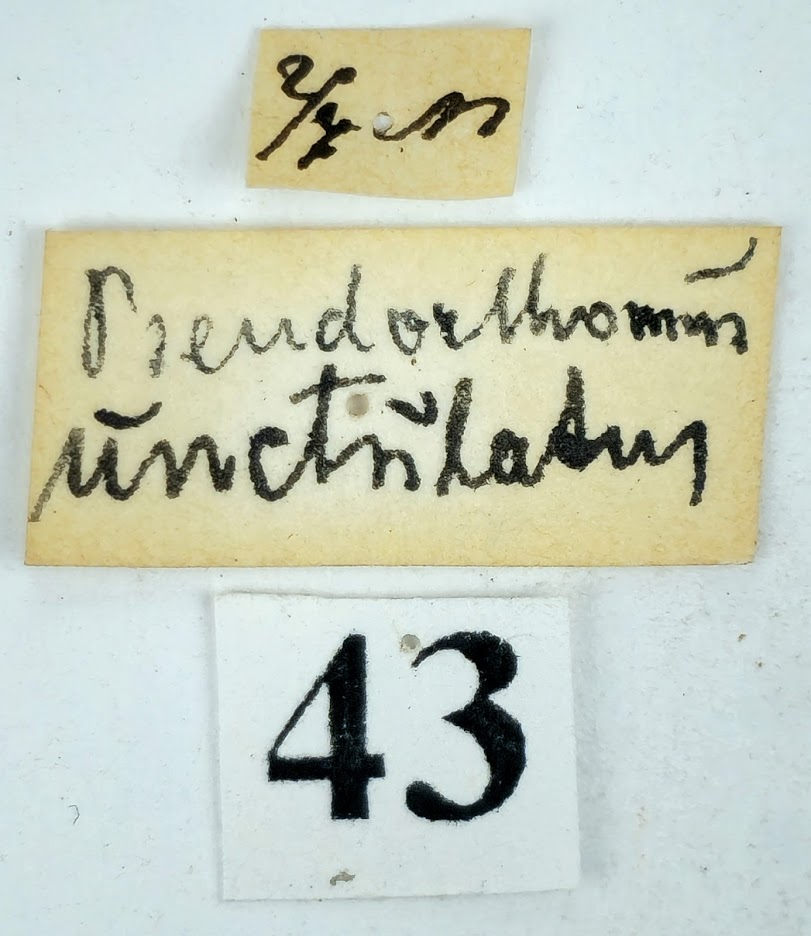 Pseudorthomus
unctulatus
43